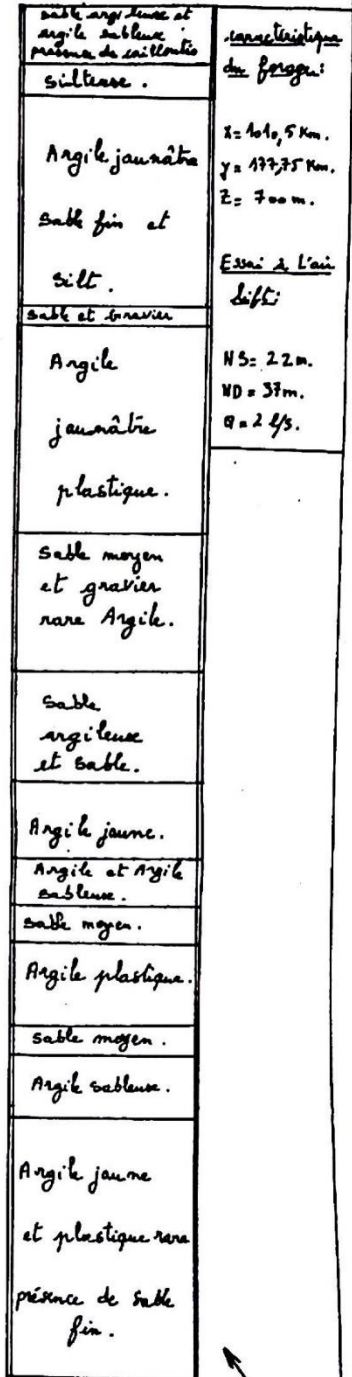 sable argileuse et
argile sableux
présence de cailloutis
siltense.
Argile jaunâtre
sable fin et
silt.
sable et Gravier
Argile
jaunâtre
plastique.
sable moyen
et gravier
rare Argile.
Sable
argileuse
et sable.
Argile jaune.
Argile et Argile
sableuse.
sable moyen.
Argile plastique.
sable moyen.
Argile sableuse.
Argile jaune
et plastique rare
présence de sable
fin.
caractéristique
du forage:
X= 1010,5 Km.
y= 177,75 Km.
Z= 700 m.
Essai à L'air
lift:
NS= 22m.
ND= 37m.
Q= 2 l/s.